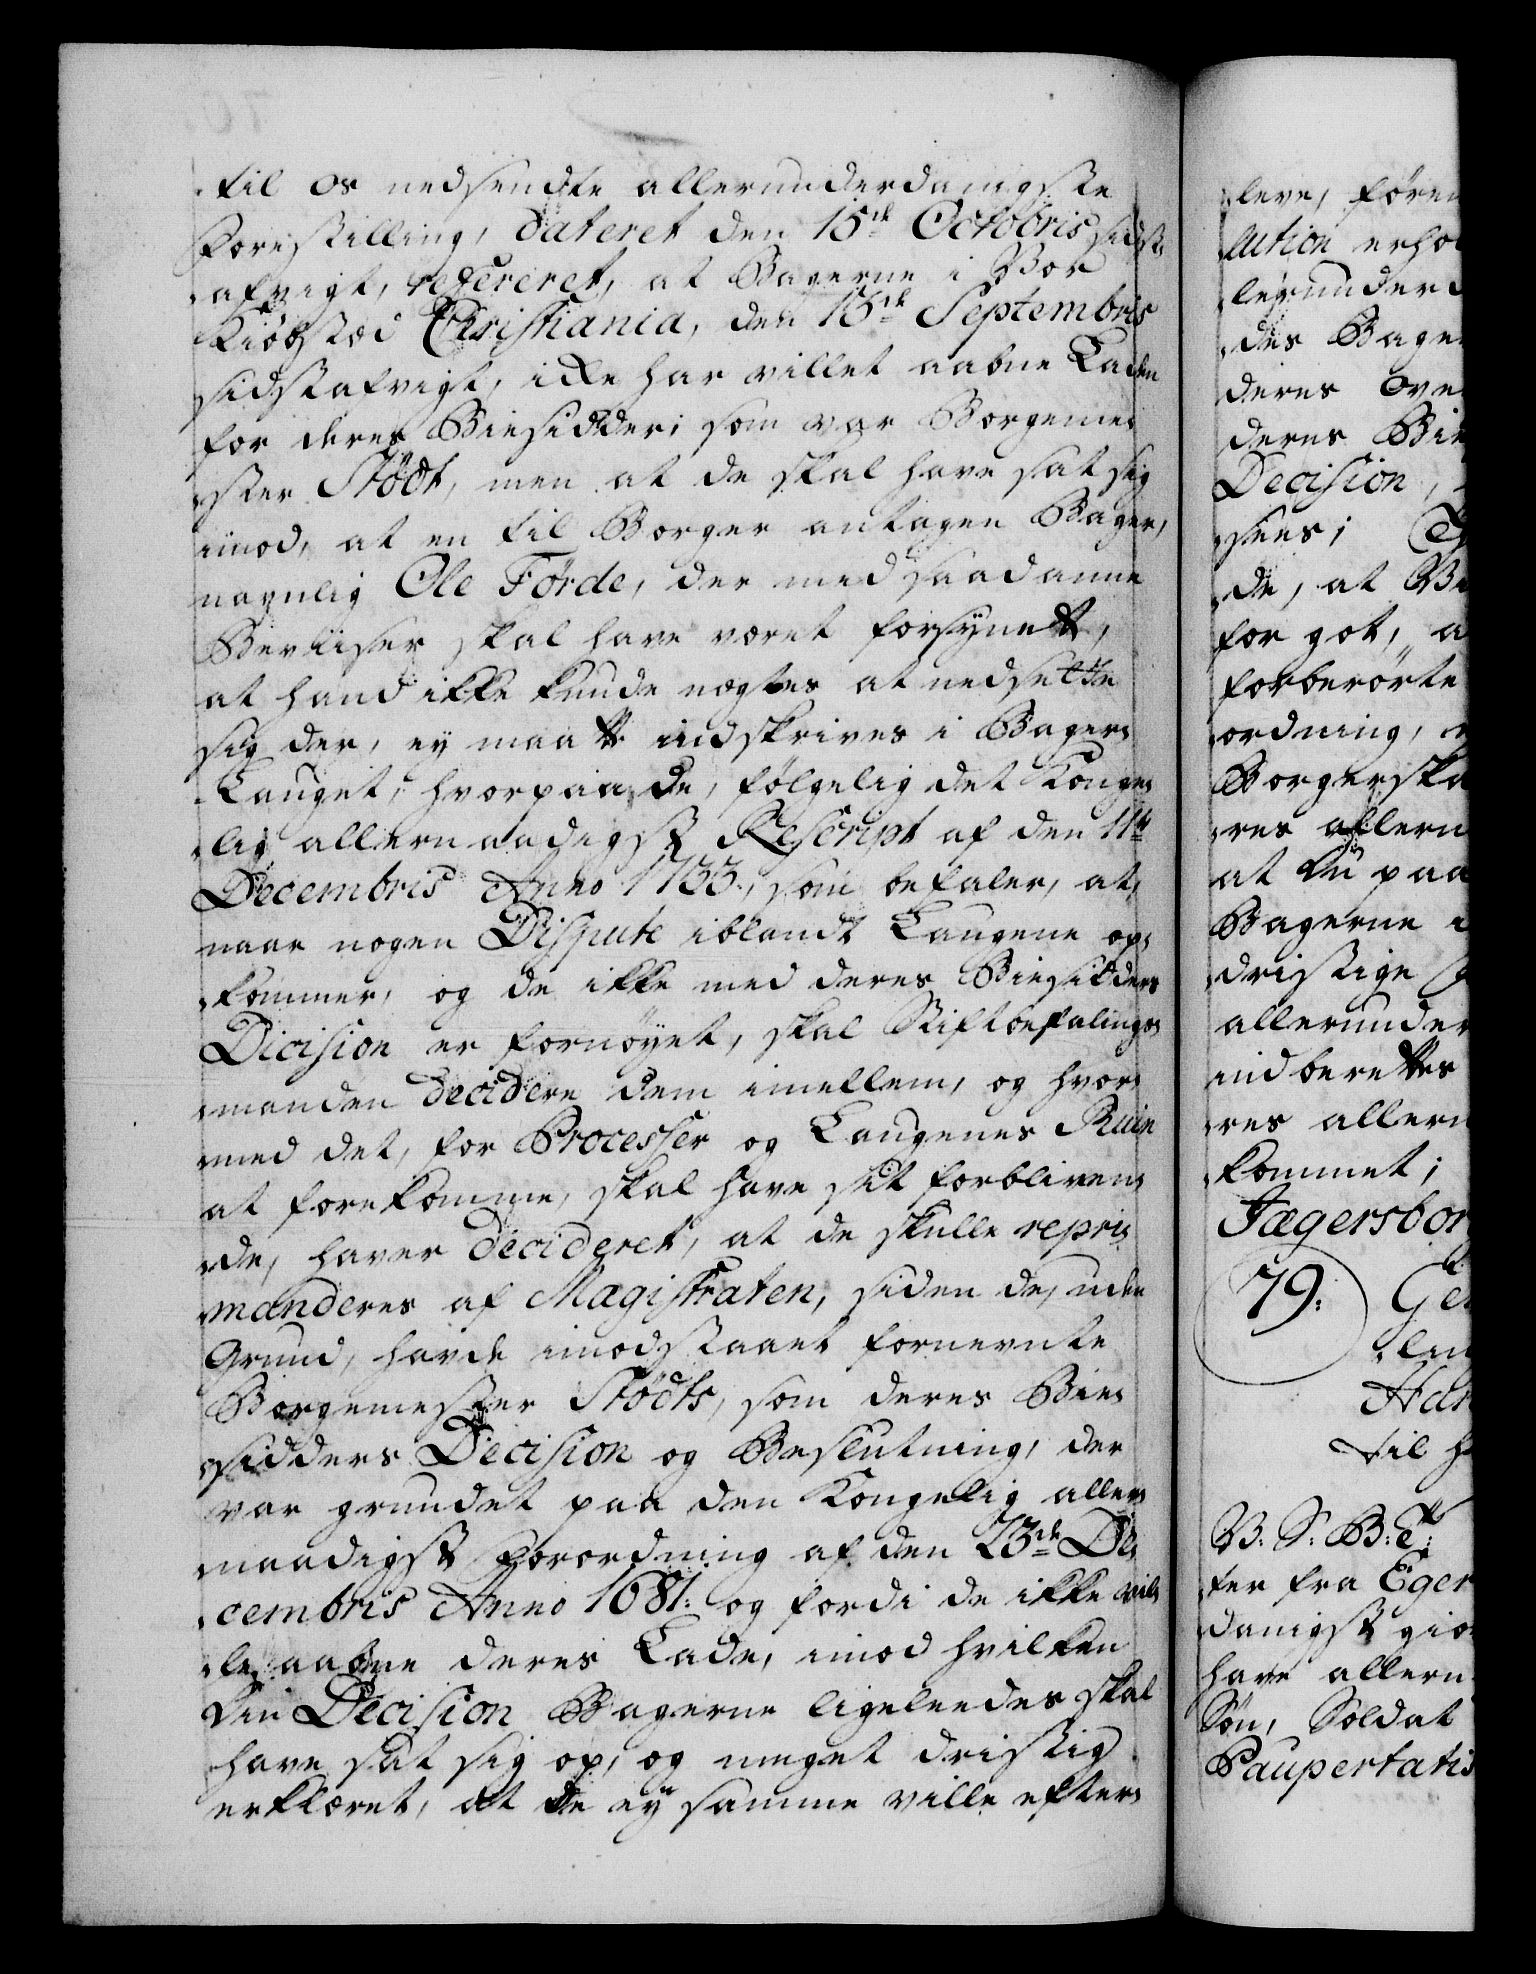 til os nedsendte allerunderdanigste
Forestilling, dateret den 15de Octobris sidst-
afvigt, refereret, at Bagerne i Vor
Kiöbstæd Christiania, den 15de Septembris
sidstafvigt, icke har villet aabne Laden
for deres Biesidder, som var Borgeme-
ster Stödt, men at de skal have sat sig
imod, at en til Borger antagen Bager,
navnlig Ole Förde, der med saadanne
Beviiser skal have været forsynet,
at hand ikke kunde nægtes at nedsette
sig der, ey maatte indskrives i Bager-
Lauget, hvorpaa de, fölgelig det Konge-
lig allernaadigst Rescript af den 11te
Decembris Anno 1733, som befaler, at,
naar nogen Dispute iblandt Laugene op-
kommer, og de ikke med deres Biesidders
Dicision er fornöyet, skal Stiftbefalings-
manden decidere dem imellem, og hvor-
med det, for Processer og Laugenes Ruin
at forekomme, skal have sit forbliven-
de, haver decideret, at de skulle repri-
manderes af Magistraten, siden de, uden
Grund, havde imodstaaet fornevnte
Borgemester Stödts, som deres Bie-
sidders Decision og Beslutning, der
var grundet paa den Kongelig aller-
naadigst Forordning af den 23de De-
cembris Anno 1681. og fordi de ikke vil-
le aabne deres Lade, imod hvilken
Din Decision Bagerne ligeleedes skal
have sat sig op, og meget dristig
erklæret, at de ey samme ville efter-
leve, fören
lution erhol
lerunderd
des Bager
deres Ove
deres Bie
Decision,
sees;
de, at
for got, a
forberörte
ordning,
Borgerska
res allern
at Du paa
Bagerne i
dristige
allerunder
indberettes
res allern
kommet;
Jægersbor
79.
til
V. S. B. T.
ter fra Eger
danigst gio
have allern
Sön, Soldat
Paupertatis